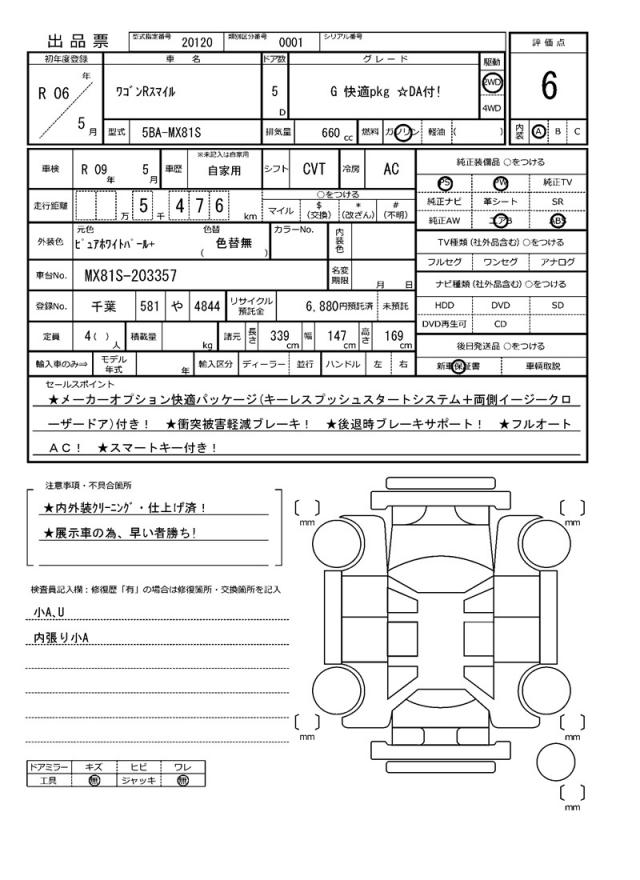 出品票 型式指定番号 20120 類別区分番号 0001 シリアル番号
評価点
6
初年度登録 車名 ドア数 グレード 駆動
R 06 年 5 月
ワゴンRスマイル 5 D G 快適pkg ☆DA付! 2WD 4WD
型式 5BA-MX81S 排気量 660 cc 燃料 ガソリン 軽油 ( )
内装 A B C
車検 R 09 年 5 月 車歴 ※未記入は自家用 自家用 シフト CVT 冷房 AC
走行距離 万 5 千 4 7 6 km
○をつける
マイル $ (交換) * (改ざん) # (不明)
外装色 元色 ピュアホワイトパール+ 色替 ( 色替無 ) カラーNo. 内装色
車台No. MX81S-203357 名変期限 月 日
登録No. 千葉 581 や 4844 リサイクル預託金 6,880円預託済 未預託
定員 4( ) 人 積載量 kg 諸元 長さ 339 cm 幅 147 cm 高さ 169 cm
輸入車のみ⇒ モデル年式 年 輸入区分 ディーラー 並行 ハンドル 左 右
純正装備品 ○をつける
PS PW 純正TV
純正ナビ 革シート SR
純正AW エアB ABS
TV種類 (社外品含む) ○をつける
フルセグ ワンセグ アナログ
ナビ種類 (社外品含む) ○をつける
HDD DVD SD
DVD再生可 CD
後日発送品 ○をつける
新車保証書 車輌取説
セールスポイント
★メーカーオプション快適パッケージ(キーレスプッシュスタートシステム+両側イージークロ
ーザードア)付き! ★衝突被害軽減ブレーキ! ★後退時ブレーキサポート! ★フルオート
AC! ★スマートキー付き!
注意事項・不具合箇所
★内外装クリーニング・仕上げ済!
★展示車の為、早い者勝ち!
検査員記入欄：修復歴「有」の場合は修復箇所・交換箇所を記入
小A､U
内張り小A
ドアミラー キズ ヒビ ワレ
工具 無 ジャッキ 無
mm
mm
mm
mm
mm